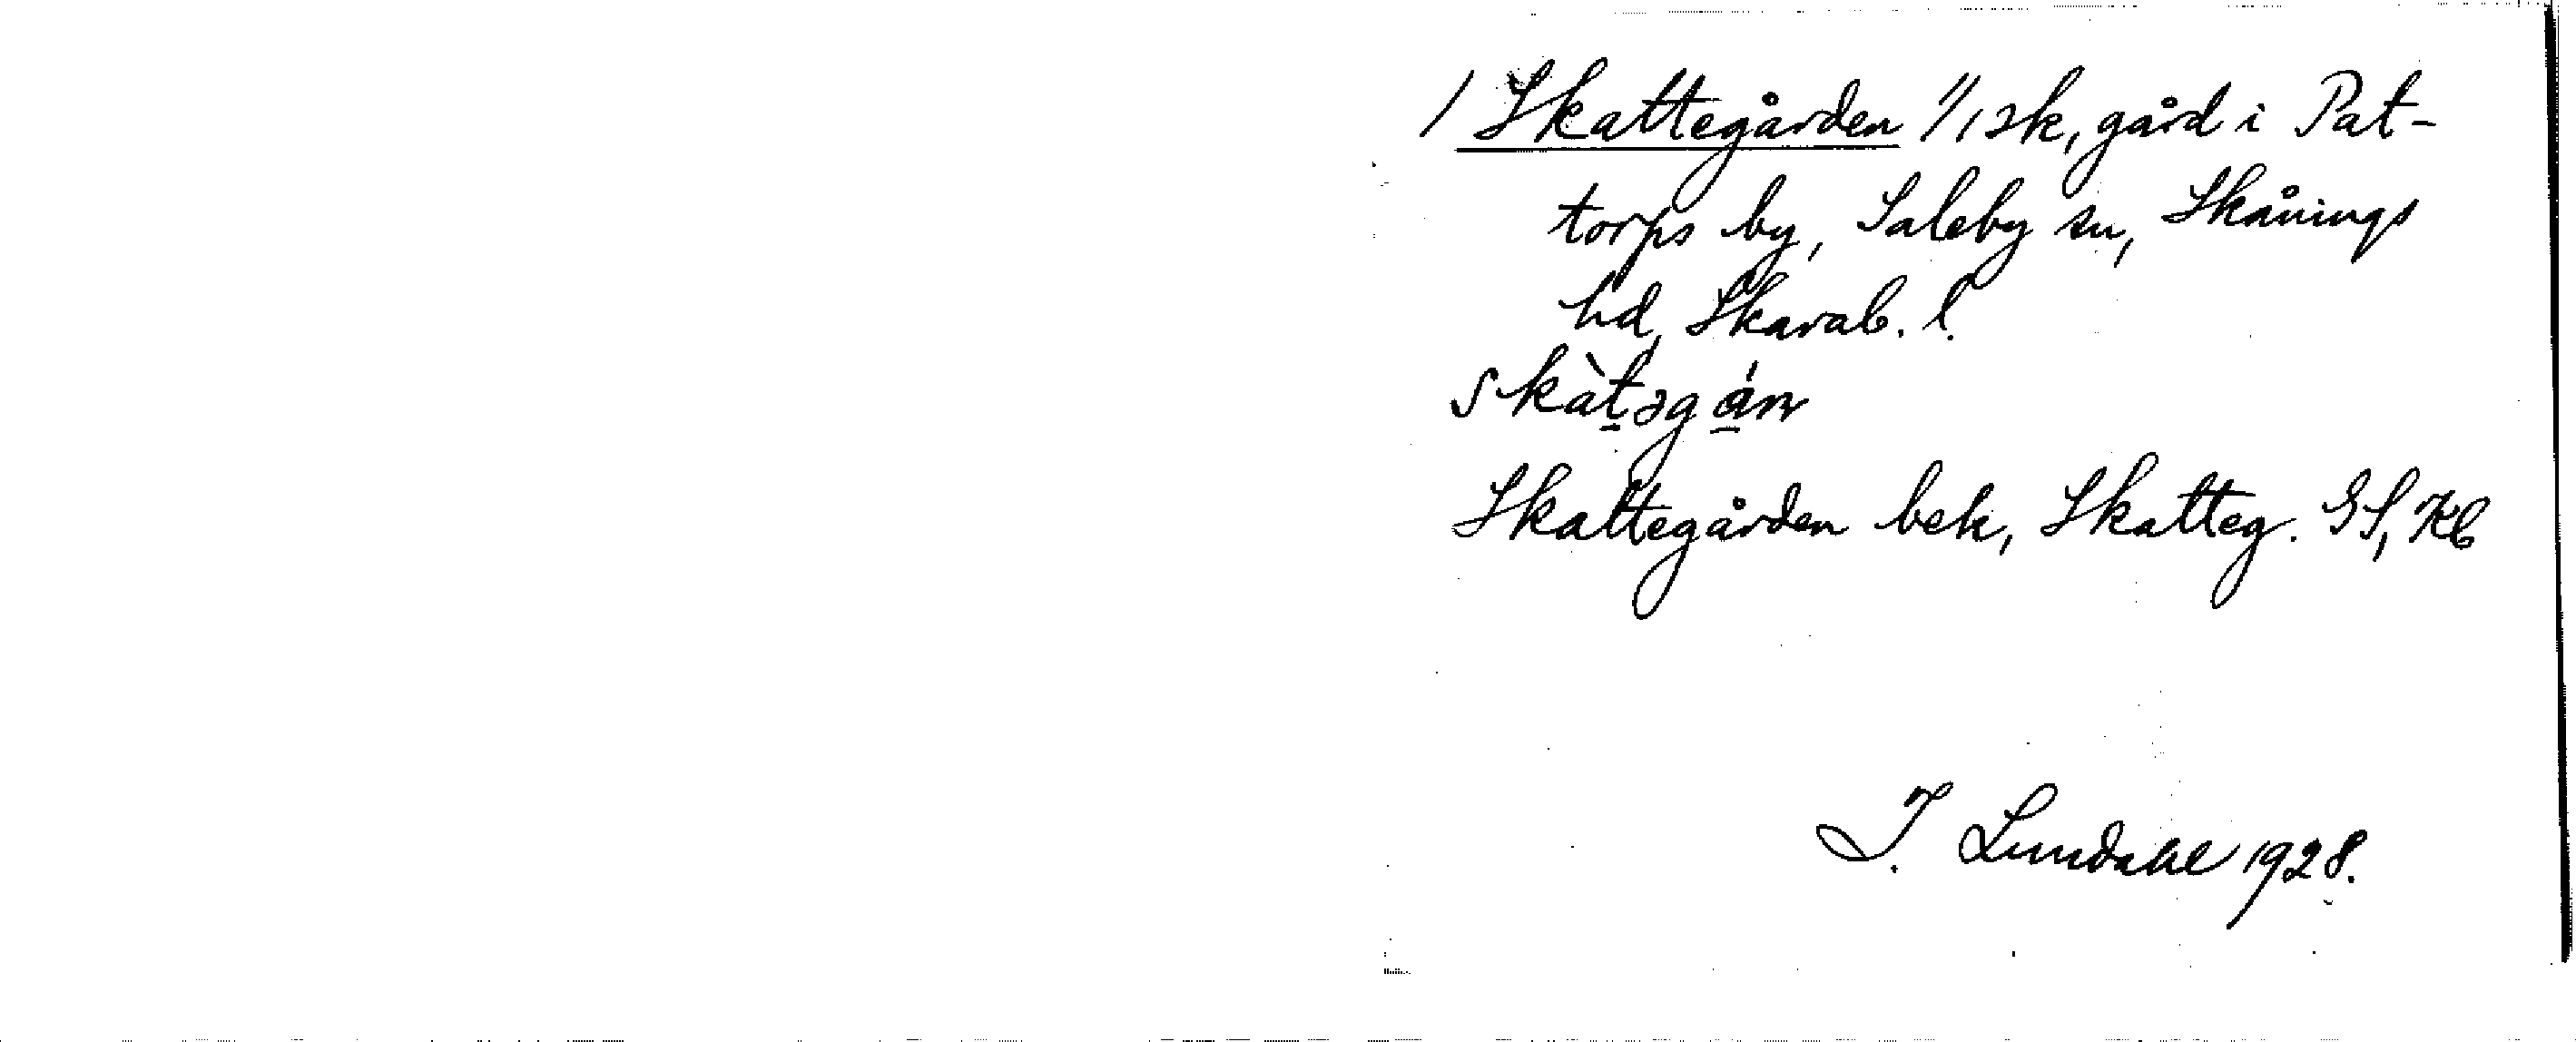 / Skattegården 1/1 sk, gård i Pat-
torps by, Saleby sn, Skånings
hd, Skarab. l.
skàt̠əgá̠n
Skattegården bek, Skatteg. GS, Kb
I. Lundahl 1928.